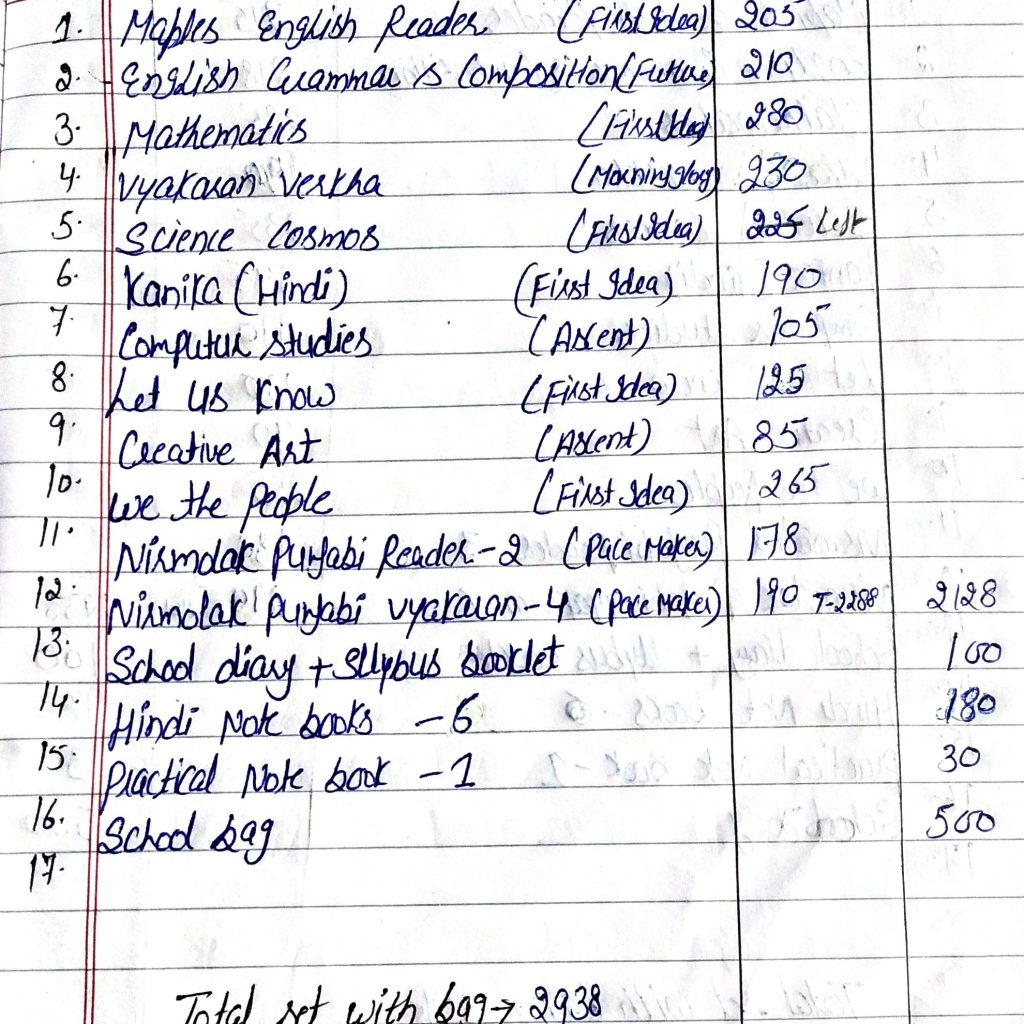 1. Maples English Reader (First Idea) 205
2. English Grammar & Composition (Future) 210
3. Mathematics (First Idea) 280
4. Vyakaran Verkha (Morning glory) 230
5. Science Cosmos (First Idea) 225 Left
6. Kanika (Hindi) (First Idea) 190
7. Computer studies (Ascent) 105
8. Let Us Know (First Idea) 125
9. Creative Art (Ascent) 85
10. We the People (First Idea) 265
11. Nirmolak Punjabi Reader-2 (Pace Maker) 178
12. Nirmolak Punjabi Vyakaran-4 (Pace Maker) 190 T-2288 2128
13. School diary + Sllybus booklet 100
14. Hindi Note books - 6 180
15. Practical Note book - 1 30
16. School bag 500
17.
Total set with bag → 2938